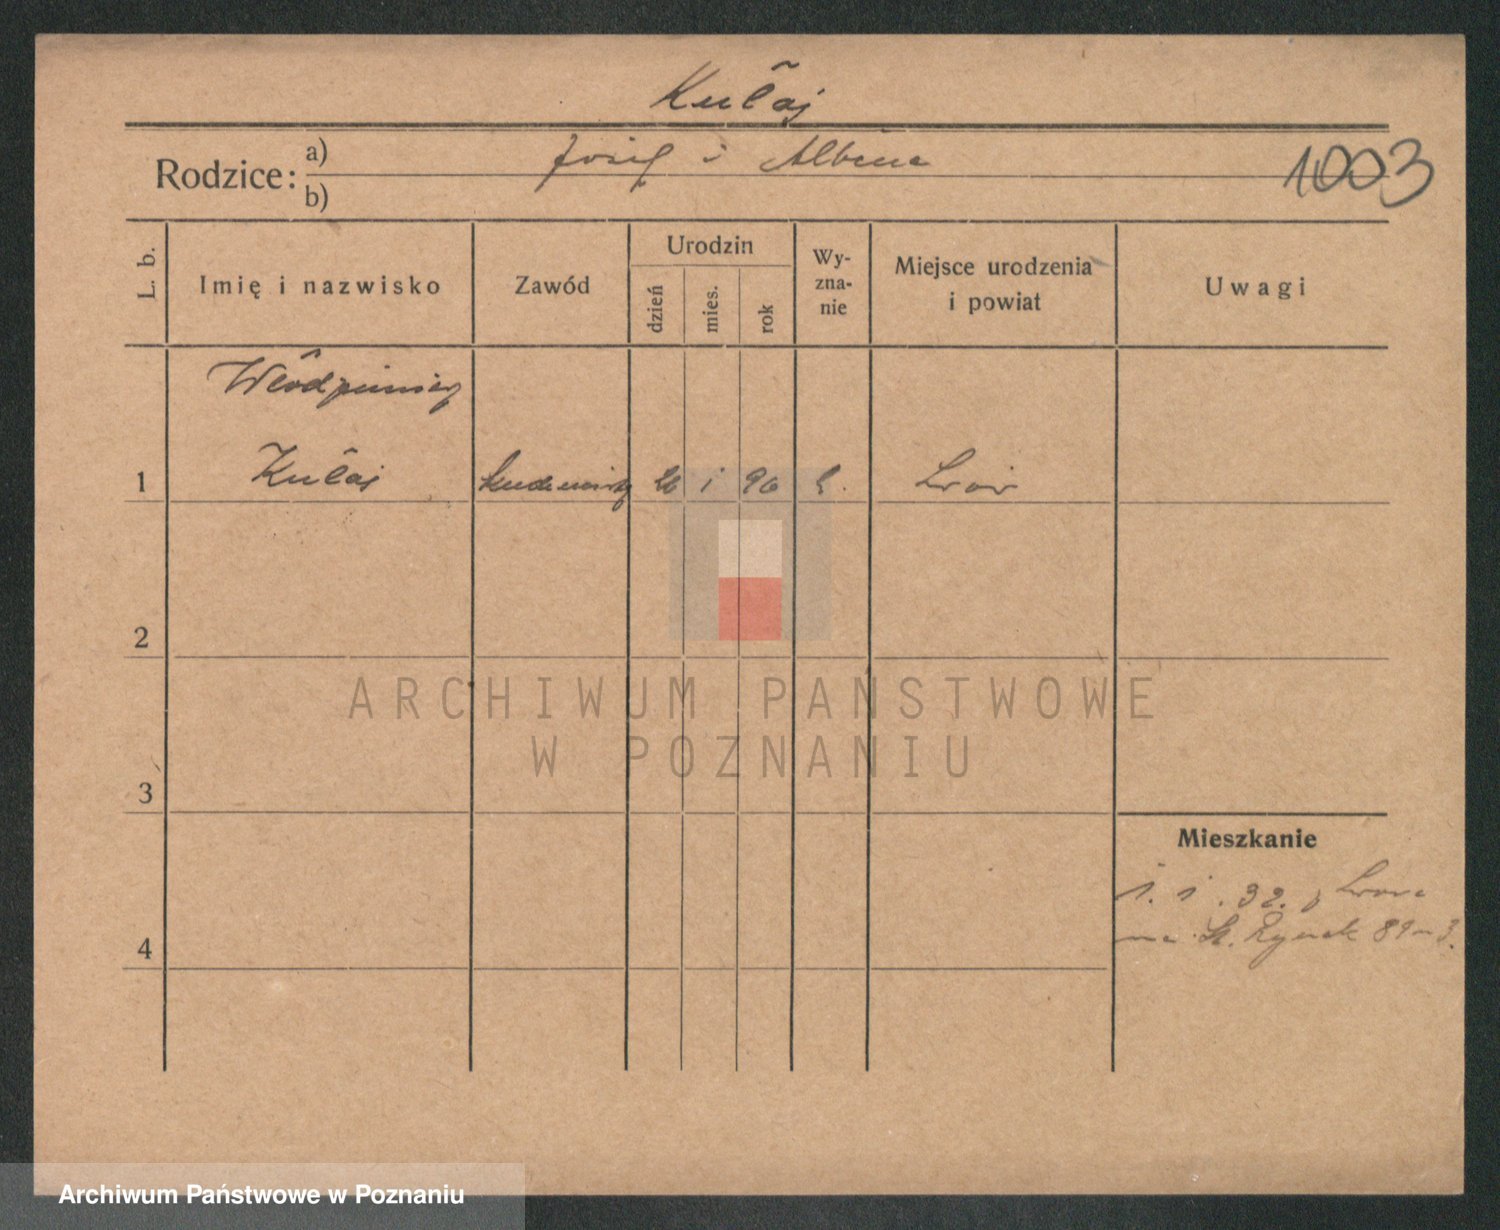 Kułaj
Rodzice: a) Józef i Albina
b)
1003
L. b.
Imię i nazwisko
Zawód
Urodzin
dzień
mies.
rok
Wy-
zna-
nie
Miejsce urodzenia
i powiat
Uwagi
Włodzimierz
1 Kułaj 26 i 96 Lwów
2
3
4
Mieszkanie
1. 1. 32. z Lwowa
na St. Rynek 89 m 3.
ARCHIWUM PAŃSTWOWE
W POZNANIU
Archiwum Państwowe w Poznaniu